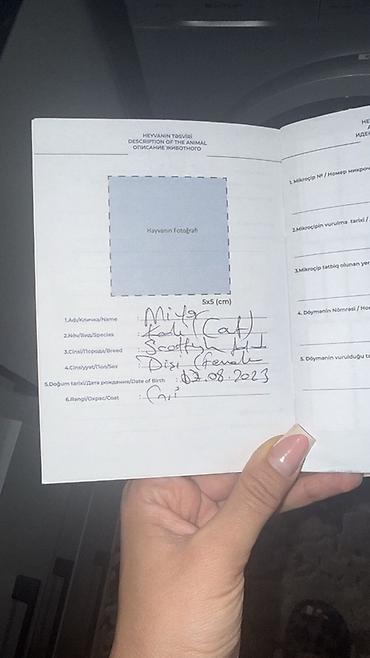 HEYVANIN TƏSVİRİ
DESCRIPTION OF THE ANIMAL
ОПИСАНИЕ ЖИВОТНОГО
Heyvanın Fotoğrafı
5x5 (cm)
1.Adı/Кличка/Name :
2.Növ/Вид/Species : Kedi (Cat)
3.Cinsi/Порода/Breed : Scottish
4.Cinsiyyət/Пол/Sex : Dişi (Female
5.Doğum tarixi/Дата рождения/Date of Birth : 17.08.2023
6.Rəngi/Окрас/Coat :
HE
ИДЕ
1. Mikroçip № / Номер микроч
2.Mikroçipin vurulma tarixi /
3.Mikroçip tətbiq olunan yer
4. Döymənin Nömrəsi / Но
5. Döymənin vurulduğu ta